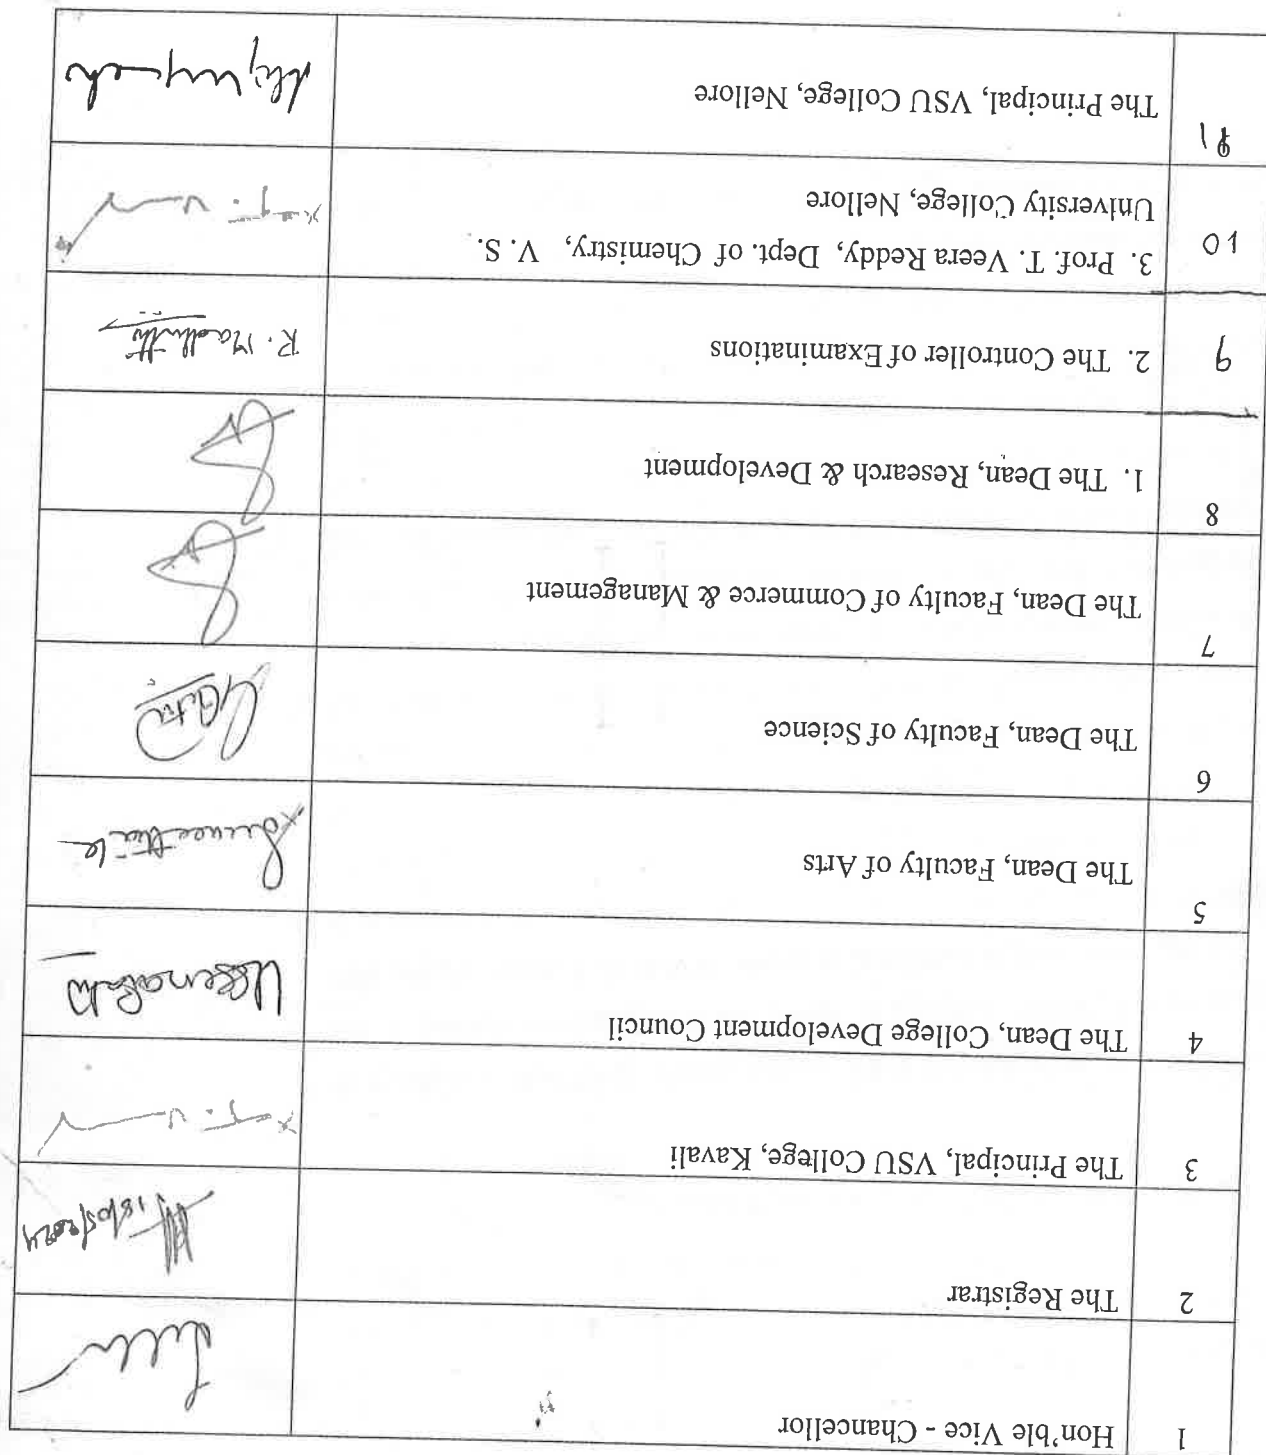 1 Hon'ble Vice - Chancellor
2 The Registrar 18/05/2024
3 The Principal, VSU College, Kavali
4 The Dean, College Development Council
5 The Dean, Faculty of Arts
6 The Dean, Faculty of Science
7 The Dean, Faculty of Commerce & Management
8 1. The Dean, Research & Development
9 2. The Controller of Examinations
10 3. Prof. T. Veera Reddy, Dept. of Chemistry, V. S.
University College, Nellore
The Principal, VSU College, Nellore